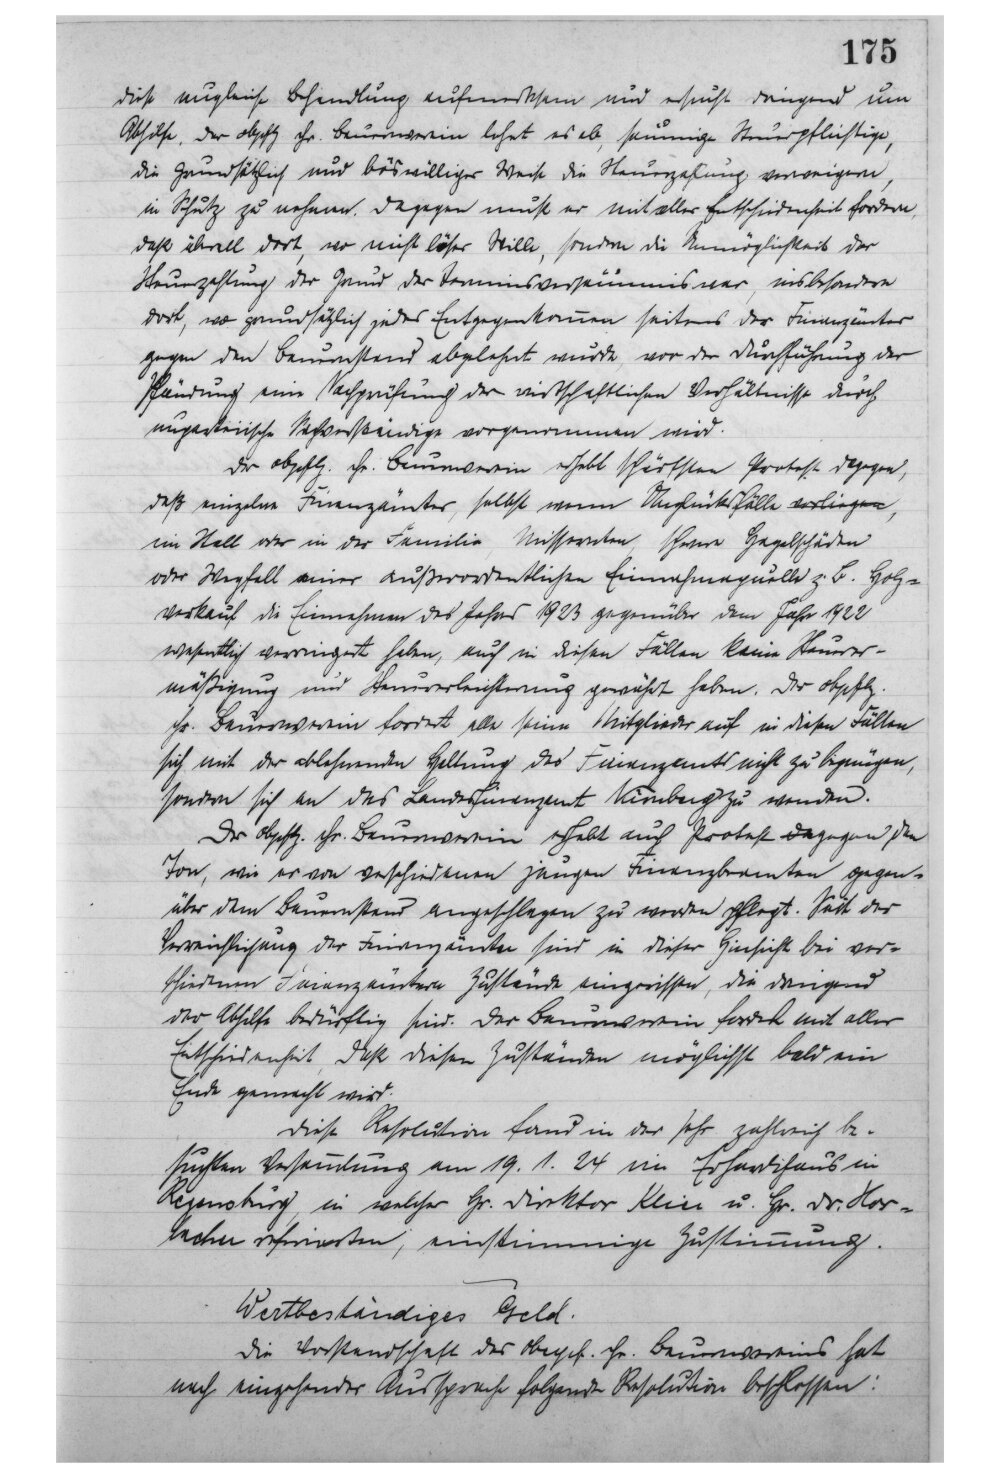 175
diese ungleiche Behandlung aufmerksam und ersucht dringend um
Abhilfe. Der obpfltz chr. Bauernverein lehnt es ab, säumige Steuerpflichtige,
die grundsätzlich und böswilliger Weise die Steuerzahlung verweigern,
in Schutz zu nehmen. Dagegen muß er mit aller Entschiedenheit fordern,
daß überall dort, wo nicht böser Wille, sondern die Unmöglichkeit der
Steuerzahlung der Grund der Terminsversäumnis war, insbesondere
dort, wo grundsätzlich jedes Entgegenkommen seitens der Finanzämter
gegen den Bauernstand abgelehnt wurde, vor der Durchführung der
Pfändung eine Nachprüfung der wirtschaftlichen Verhältnisse durch
unparteiische Sachverständige vorgenommen wird.
Der obpfltz. chr. Bauernverein erhebt schärfsten Protest dagegen,
daß einzelne Finanzämter, selbst wenn Unglücksfälle vorliegen,
im Stall oder in der Familie, Missernten, schwere Hagelschäden
oder Wegfall einer außerordentlichen Einnahmequelle z. B. Holz=
verkauf die Einnahmen des Jahres 1923 gegenüber dem Jahr 1922
wesentlich verringert haben, auch in diesen Fällen keine Steuerer-
mäßigung und Steuererleichterung gewährt haben. Der obpfltz.
chr. Bauernverein fordert alle seine Mitglieder auf in diesen Fällen
sich mit der ablehnenden Haltung des Finanzamts nicht zu begnügen,
sondern sich an das Landesfinanzamt Nürnberg zu wenden.
Der obpfltz. chr. Bauernverein erhebt auch Protest gegen den
Ton, wie er von verschiedenen jungen Finanzbeamten gegen=
über dem Bauernstand angeschlagen zu werden pflegt. Seit der
Verreichlichung der Finanzämter sind in dieser Hinsicht bei ver=
schiedenen Finanzämtern Zustände eingerissen, die dringend
der Abhilfe bedürftig sind. Der Bauernverein fordert mit aller
Entschiedenheit, daß diesen Zuständen möglichst bald ein
Ende gemacht wird.
Diese Resolution fand in der sehr zahlreich be-
suchten Versammlung am 19. 1. 24 im Erhardihaus in
Regensburg, in welcher Hr. Direktor Klier u. Hr. Dr. Hor=
lacher referierten, einstimmige Zustimmung.
Wertbeständiges Geld.
Die Vorstandschaft des oberpf. chr. Bauernvereins hat
nach eingehender Aussprache folgende Resolution beschlossen: